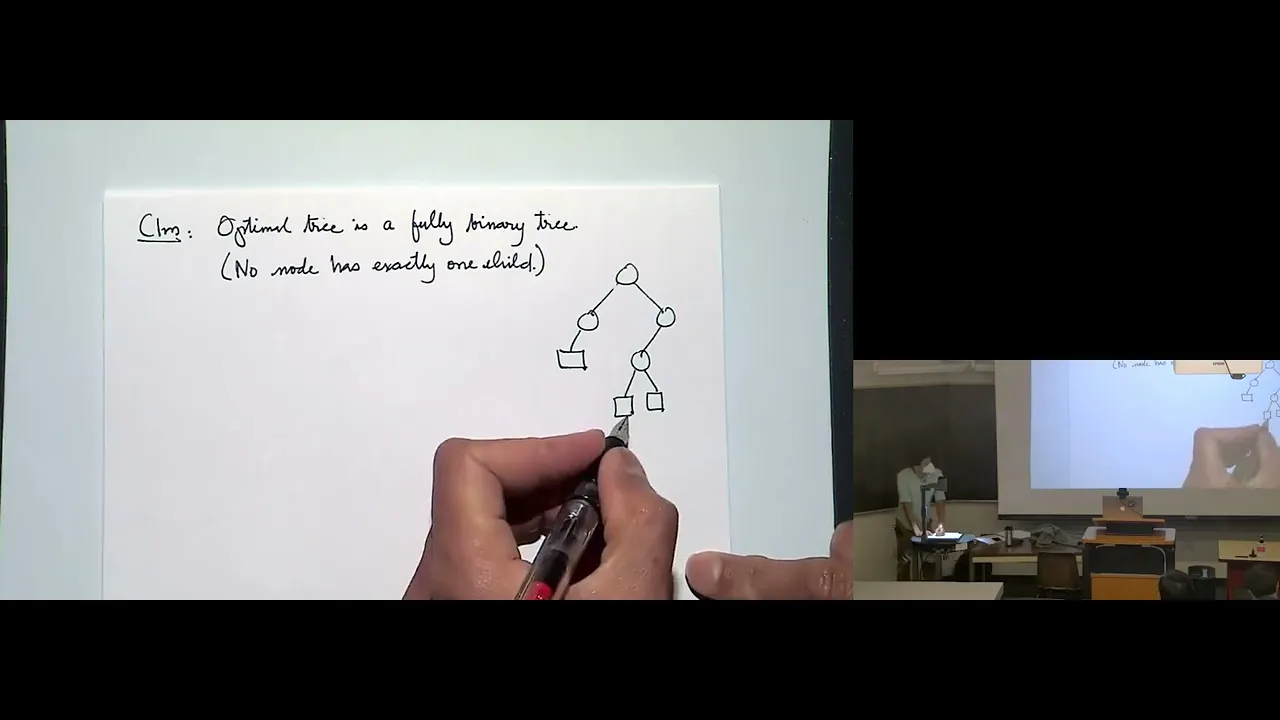 Clm: Optimal tree is a fully binary tree.
(No node has exactly one child.)
(No node has